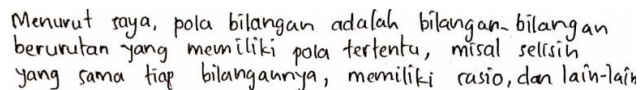 Menurut saya, pola bilangan adalah bilangan-bilangan
berurutan yang memiliki pola tertentu, misal selisih
yang sama tiap bilangannya, memiliki rasio, dan lain-lain